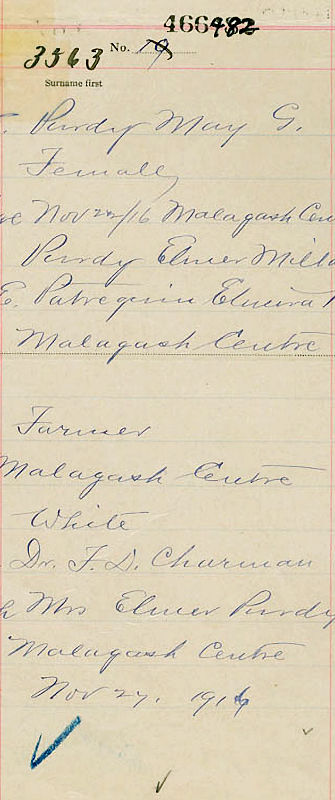 466482
3563 No. 19
Surname first
Purdy May G.
Female
Nov 22/16 Malagash Cen
Purdy Elmer Milto
E. Patrequin Elmira
Malagash Centre
Farmer
Malagash Centre
White
Dr. F. D. Charman
Mrs Elmer Purdy
Malagash Centre
Nov 27. 1916